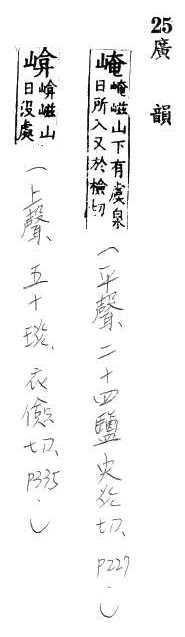 25廣韻
崦崦嵫山下有虞泉
日所入又於檢切
(平聲、二十四鹽 央炎切、P227.)
嵫山
日没處
(上聲、五十琰、衣儉切、P335.)